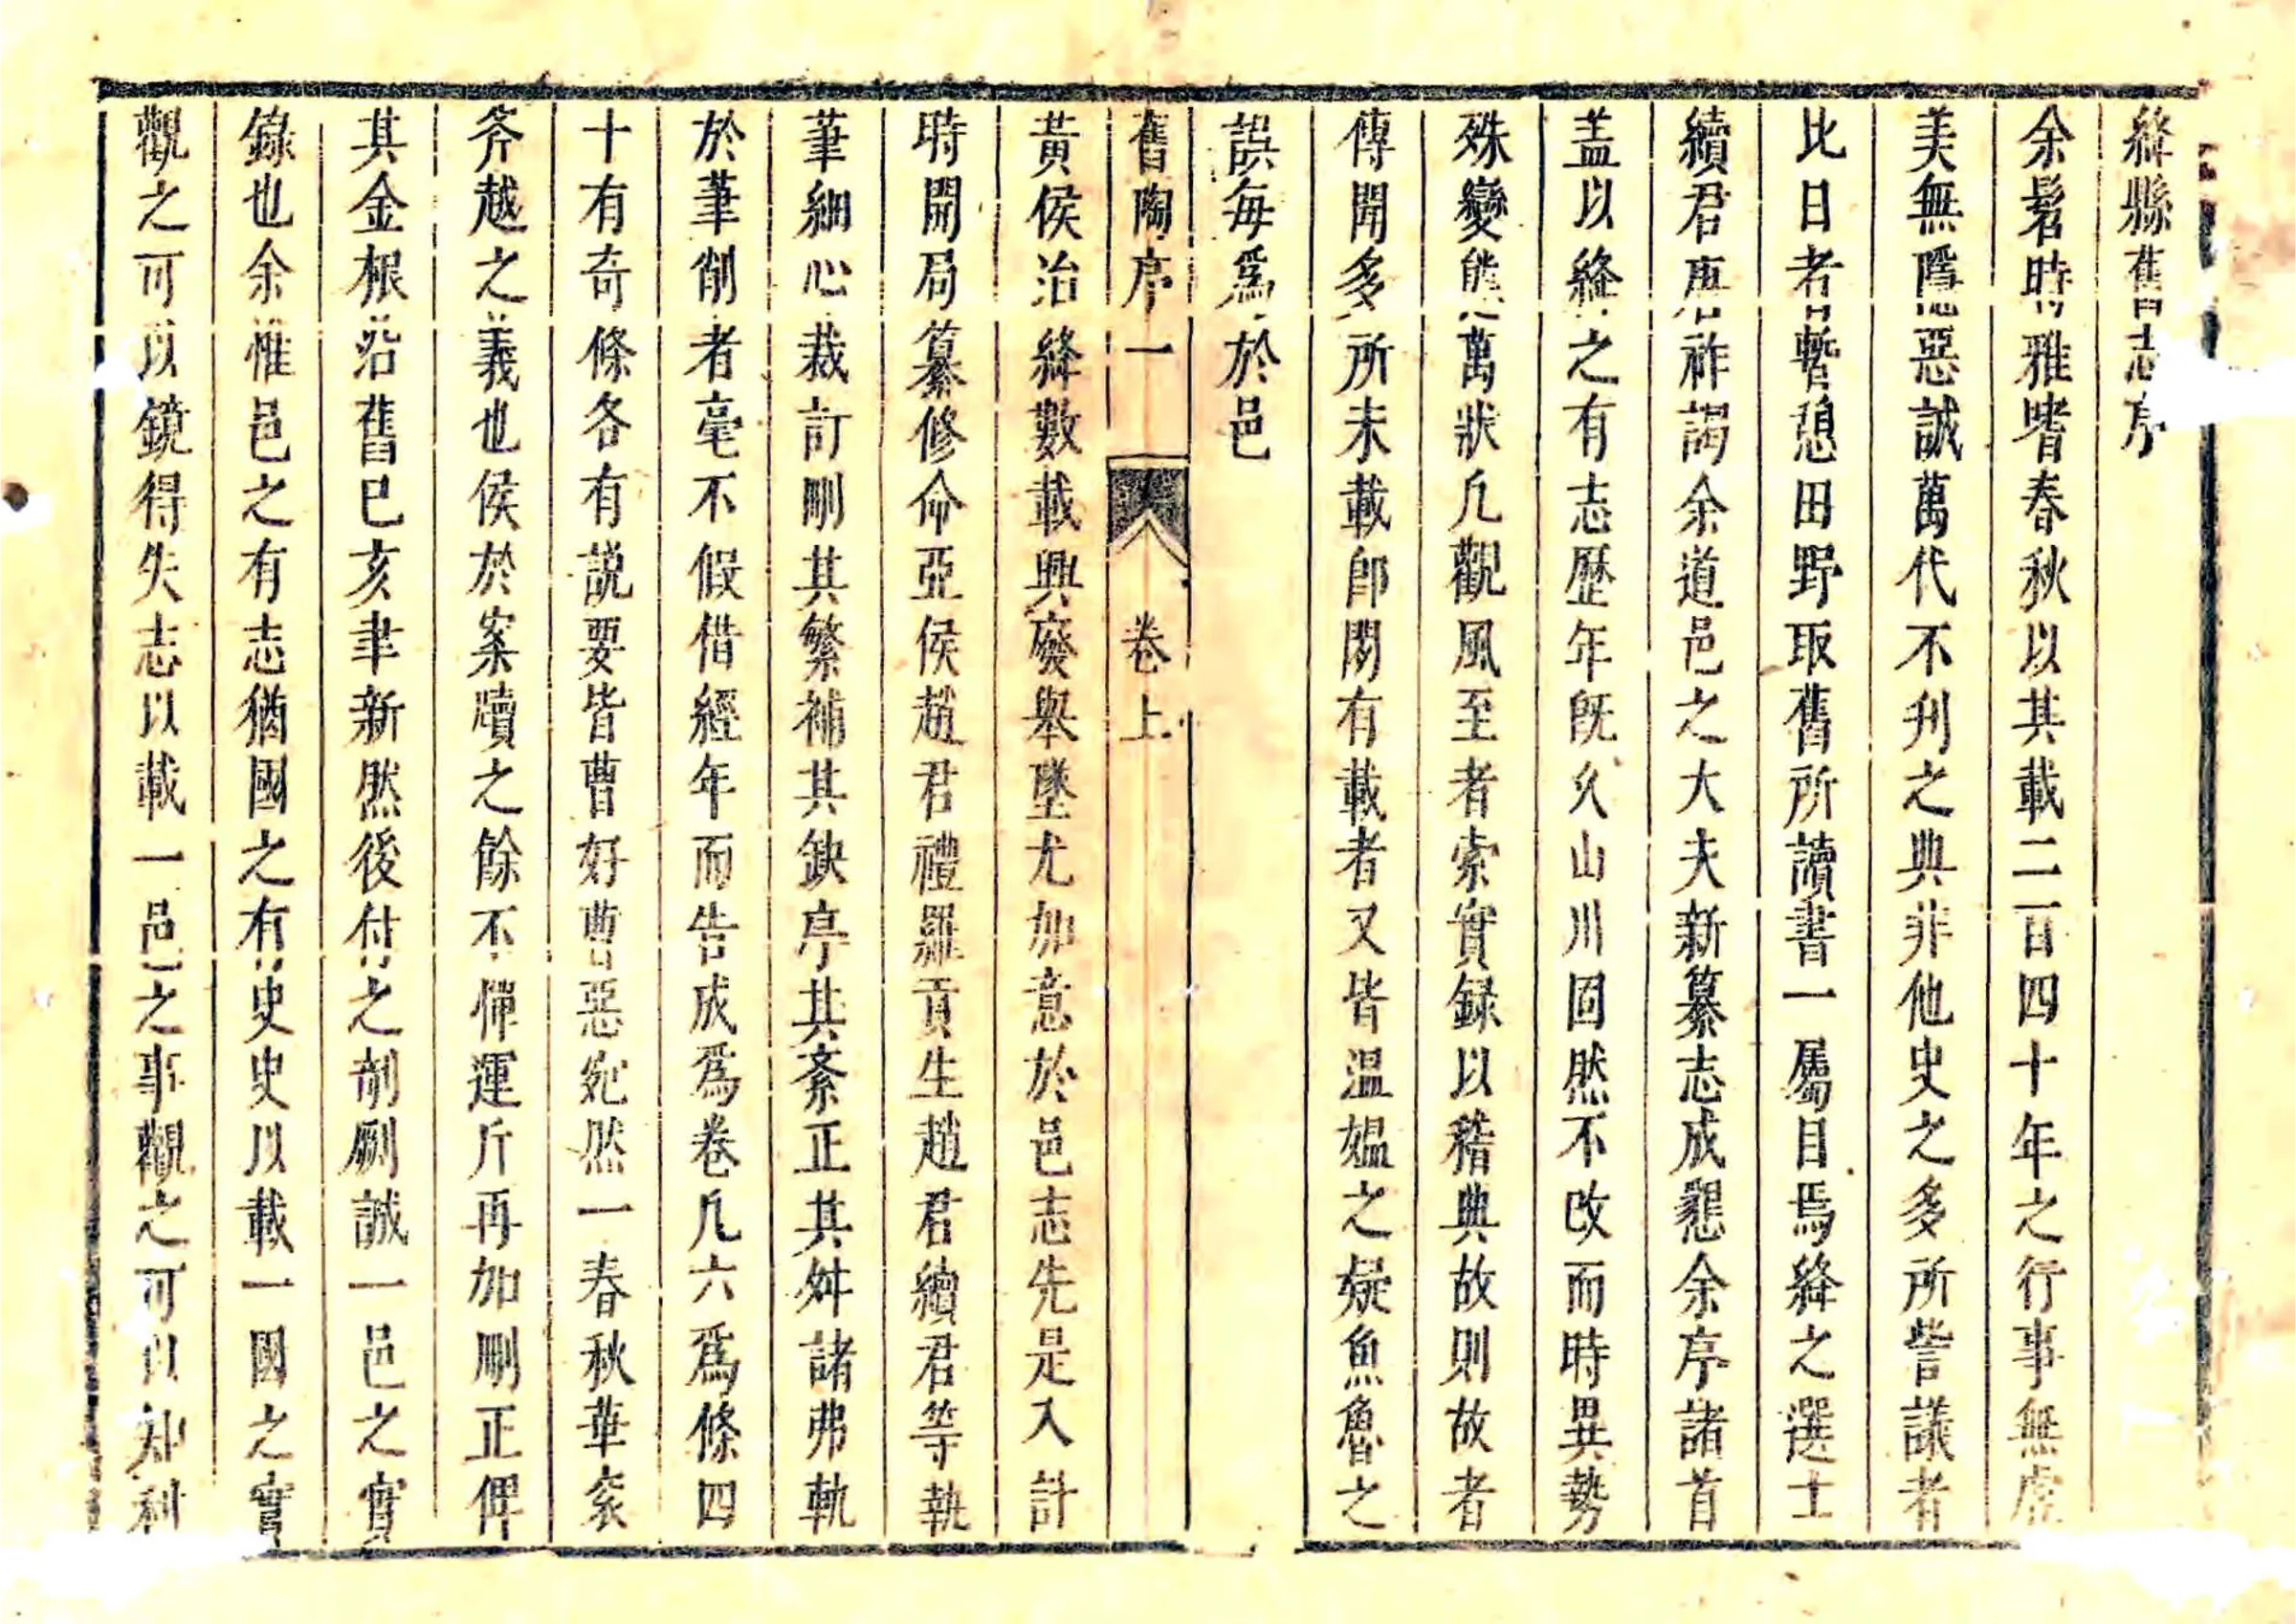 絳縣舊志序
余髫時雅嗜春秋以其載二百四十年之行事無虛
美無隱惡誠萬代不刋之典非他史之多所訾議者
比日者暫憩田野取舊所讀書一屬目焉絳之選士
續君唐祚謁余道邑之大夫新纂志成懇余序諸首
盖以絳之有志歷年旣久山川固然不改而時異勢
殊變態萬狀凢觀風至者索實録以稽典故則故者
傳聞多所未載卽間有載者又皆溫媪之疑魚魯之
誤毎爲於邑
舊陶序一 卷上
黃侯治絳數載興廢舉墜尤加意於邑志先是入計
時開局纂修命亞侯趙君禮羅貢生趙君續君等執
筆細心裁訂刪其繁補其缺序其紊正其舛諸弗軌
於筆削者毫不假借經年而告成爲卷凢六爲條四
十有奇條各有説要皆曹好曹惡宛然一春秋華衮
斧越之義也侯於案牘之餘不憚運斤再加刪正俾
其金根沿舊已亥聿新然後付之剞劂誠一邑之實
錄也余惟邑之有志猶國之有史史以載一國之實
觀之可以鏡得失志以載一邑之事觀之可以知利